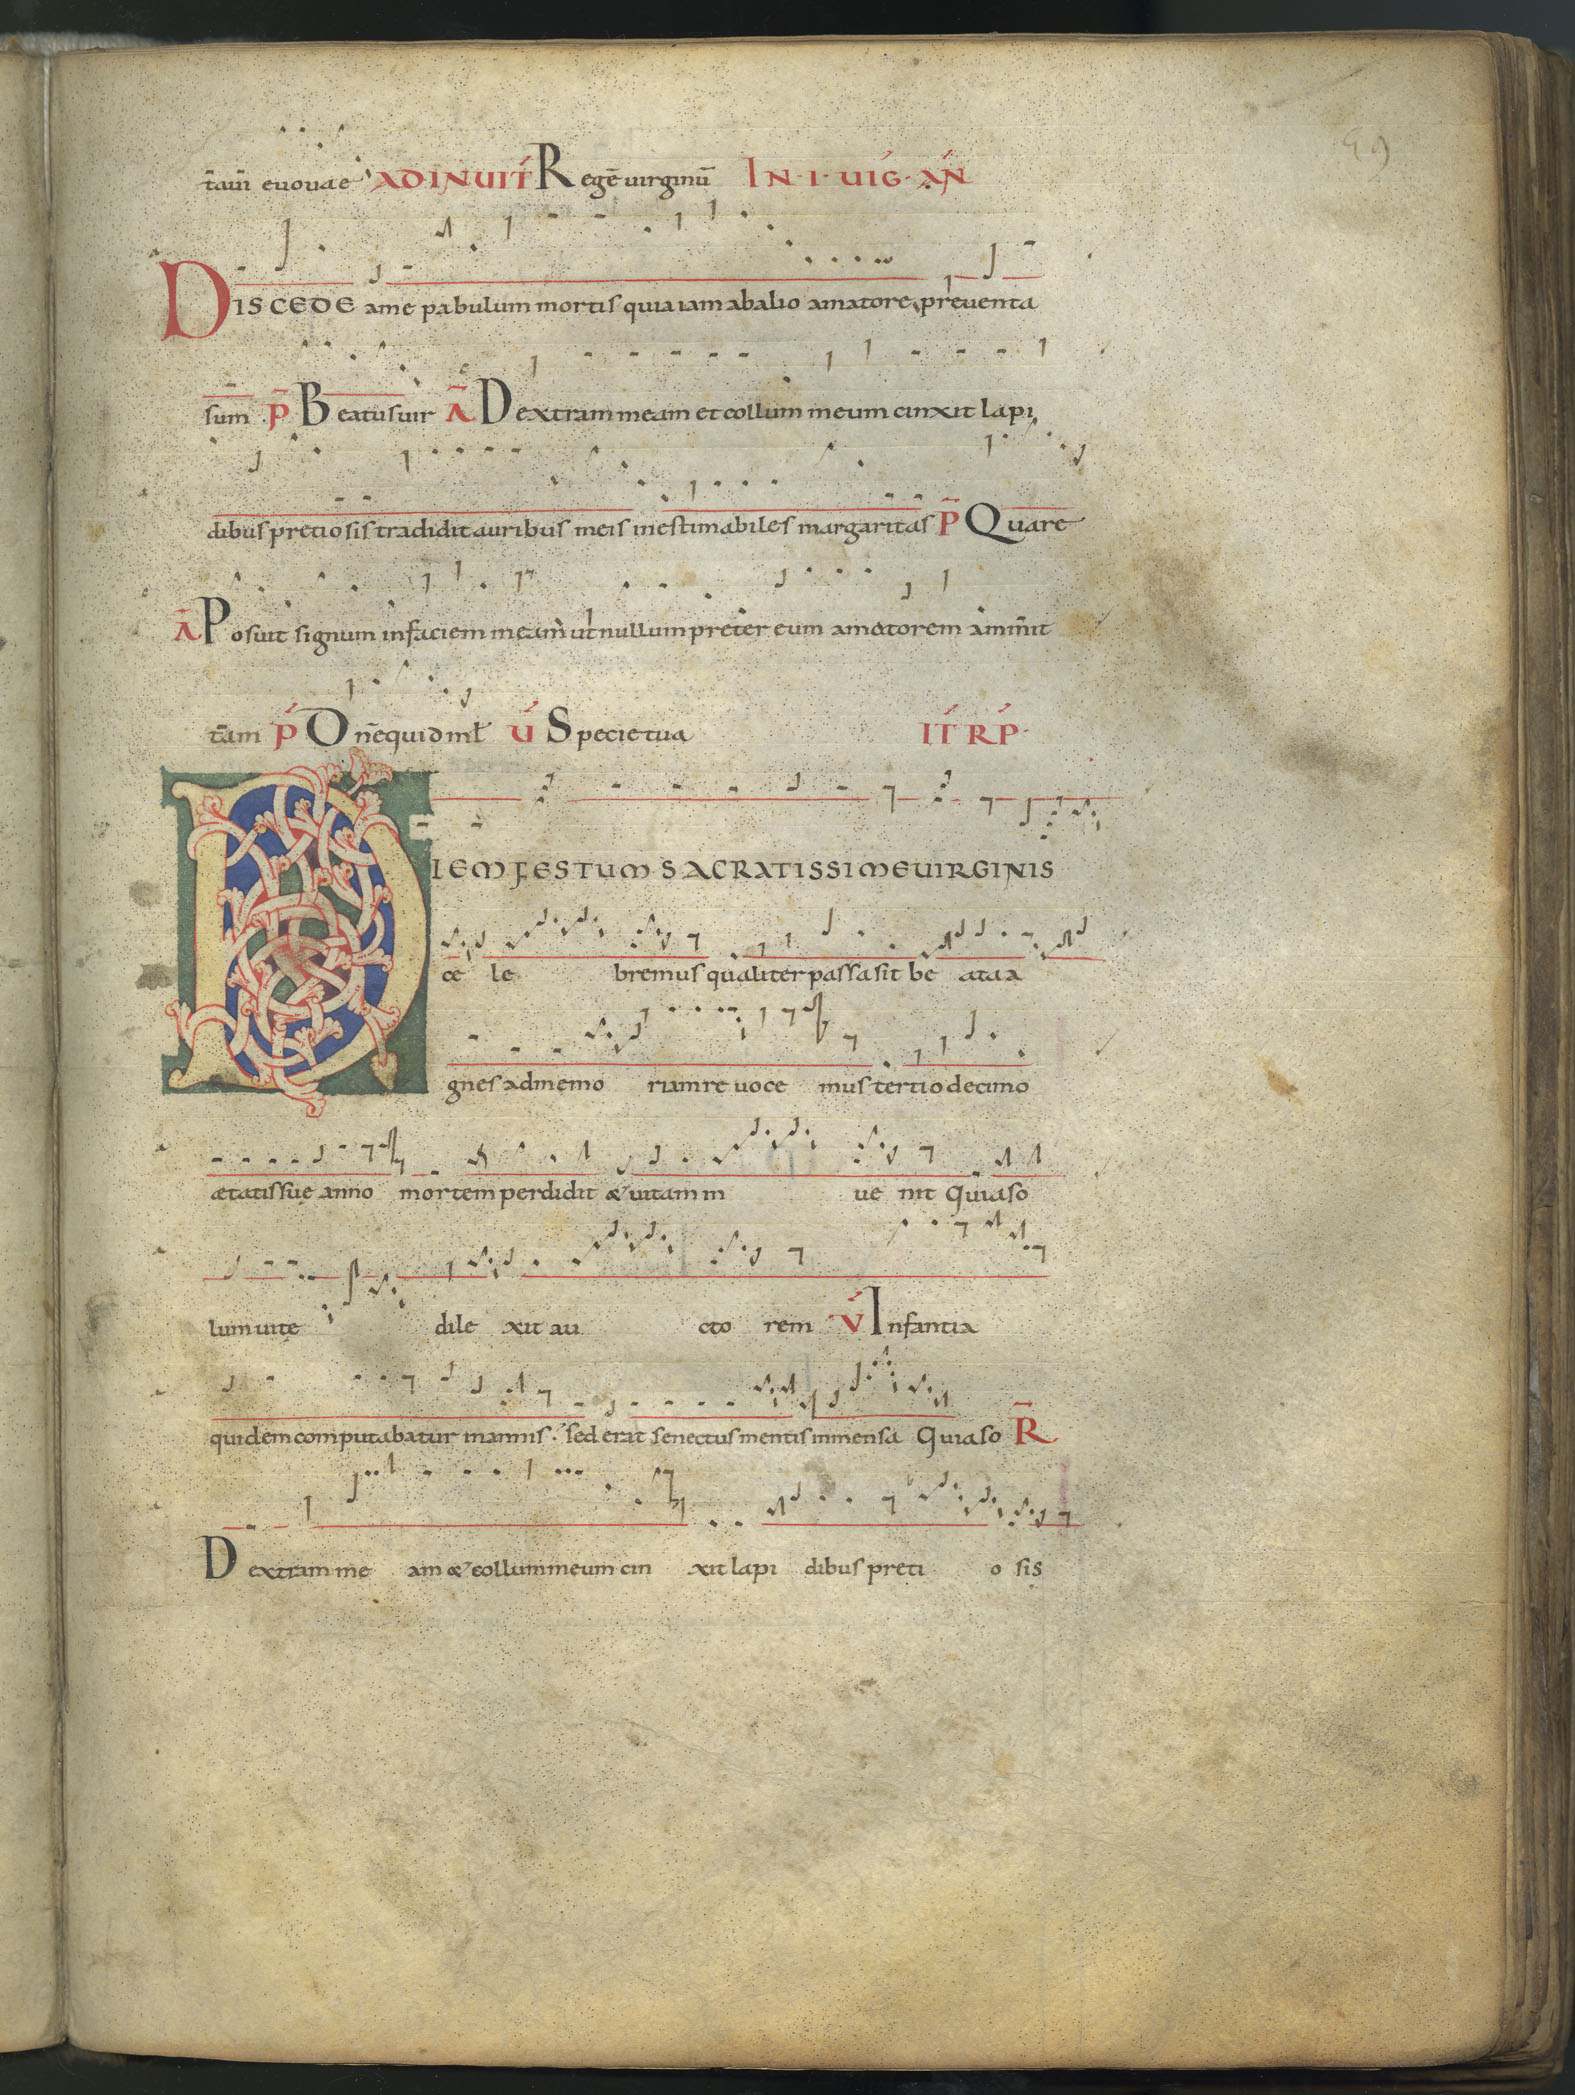 69
tam̄ euouae AD INUIT́ Regē uirginū IN·I·UIǴ·AŃ
DISCEDE ame pabulum mortis quia iam abalio amatore p̄reuenta
sum P̄ Beatus uir Ā Dextram meam et collum meum cinxit lapi
dibus pretiosis tradidit auribus meis inestimabiles margaritas P̄ Quare
Ā Posuit signum in faciem meam ut nullum preter eum amatorem amm̄it
tām Ṕ Dn̄e quid ml̄ Ú Specie tua IT́ RṔ·
DIEM FESTUM SACRATISSIME UIRGINIS
ce le bremus qualiter passa sit be ata a
gnes ad memo riam re uoce mus tertio decimo
ætatis sue anno mortem perdidit & uitam in ue nit Quia so
lum uitę dile xit au cto rem V́ Infantia
quidem computabatur in annis · sed erat senectus mentis inmensa Quia so R̄
Dextram me am & collum meum cin xit lapi dibus preti o sis